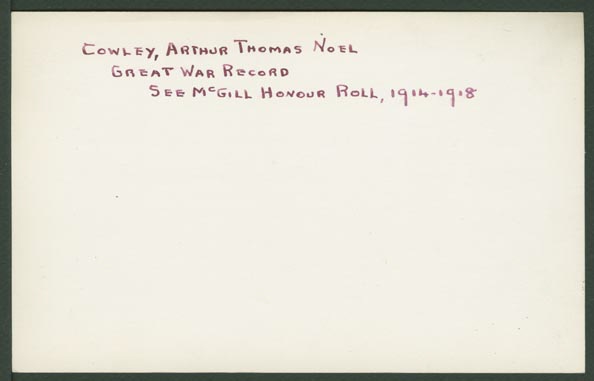 COWLEY, ARTHUR THOMAS NOEL
GREAT WAR RECORD
SEE MCGILL HONOUR ROLL, 1914-1918